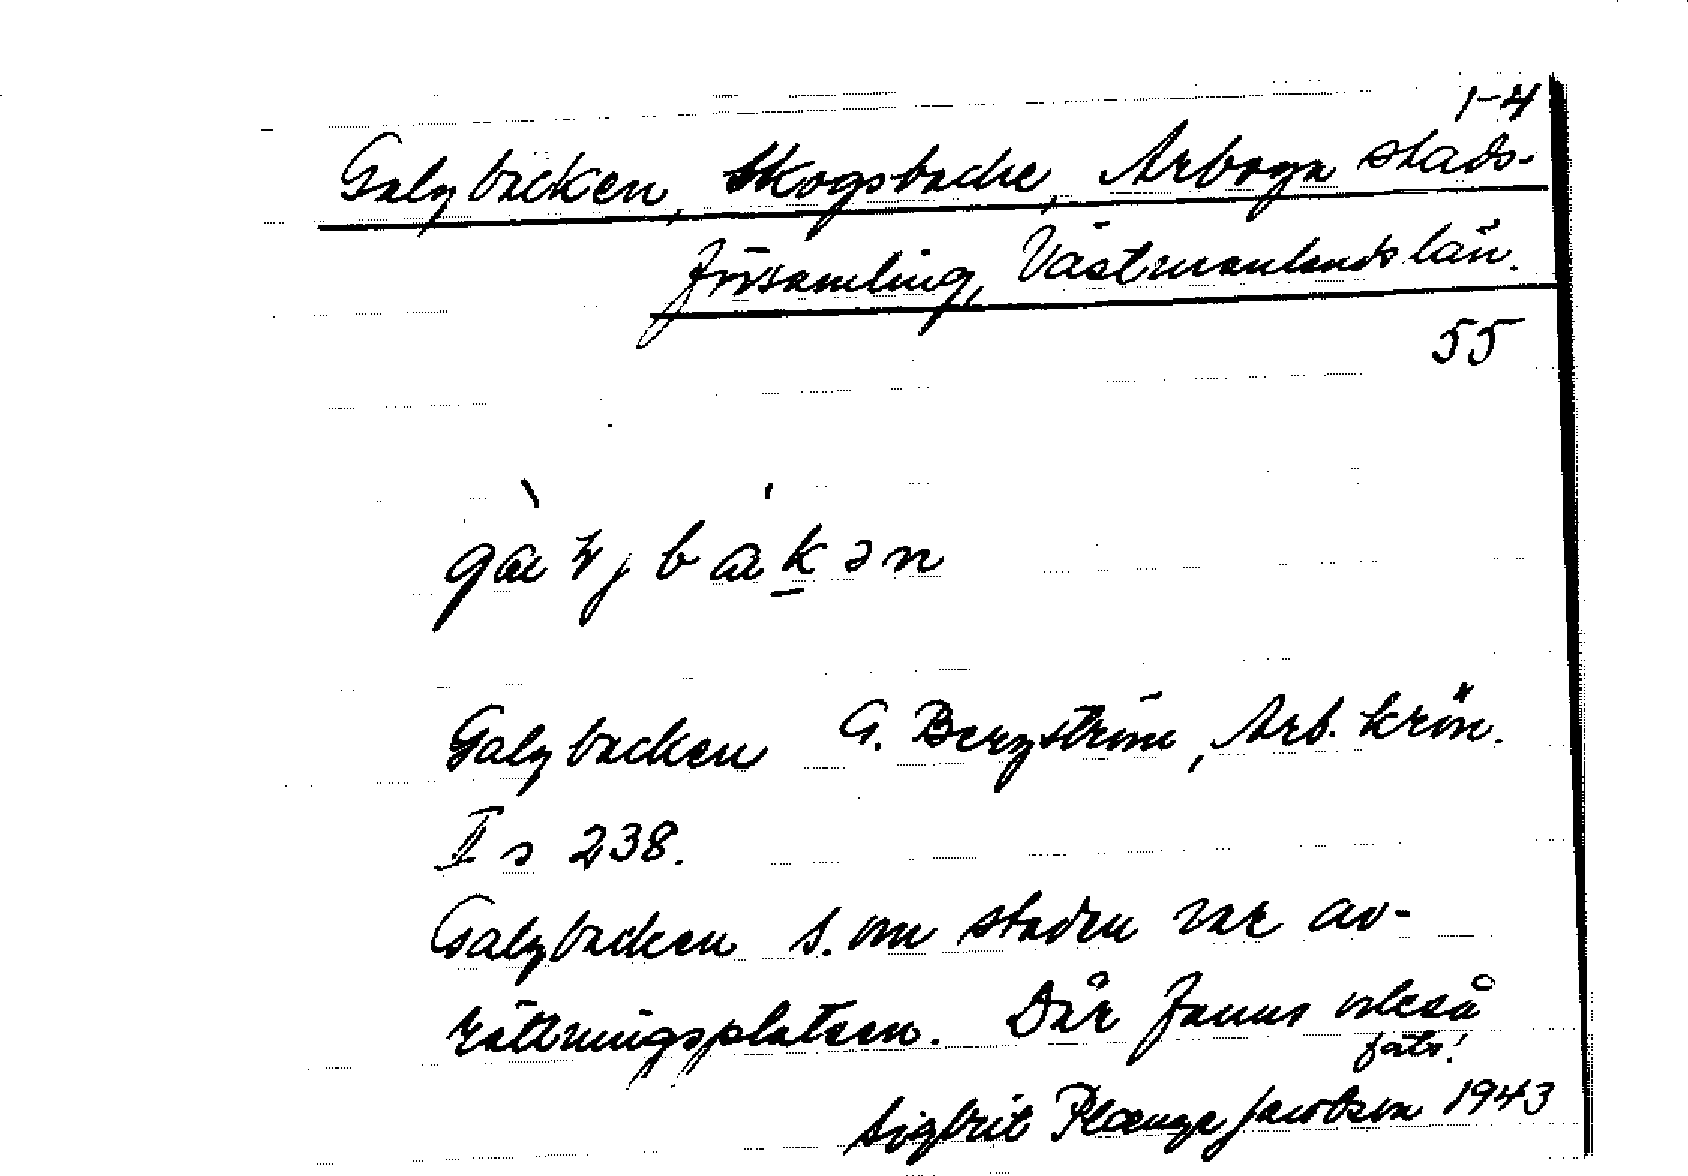 1-4
Galgbacken, Skogsbacke, Arboga stads-
församling, Västmanlands län.
55
gàljbákən
Galgbacken G. Bergström, Arb. krön.
II s 238.
Galgbacken s. om staden var av-
rättningsplatsen. Där fanns också
Sigbrit Plænge Jacobson 1943